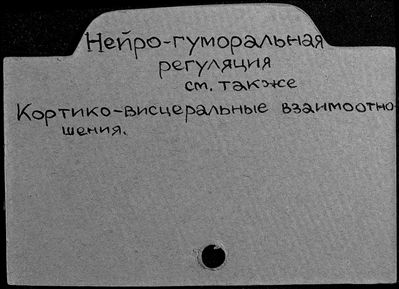 Нейро-гуморальная
регуляция
см. также
Кортико-висцеральные взаимоотно-
шения.